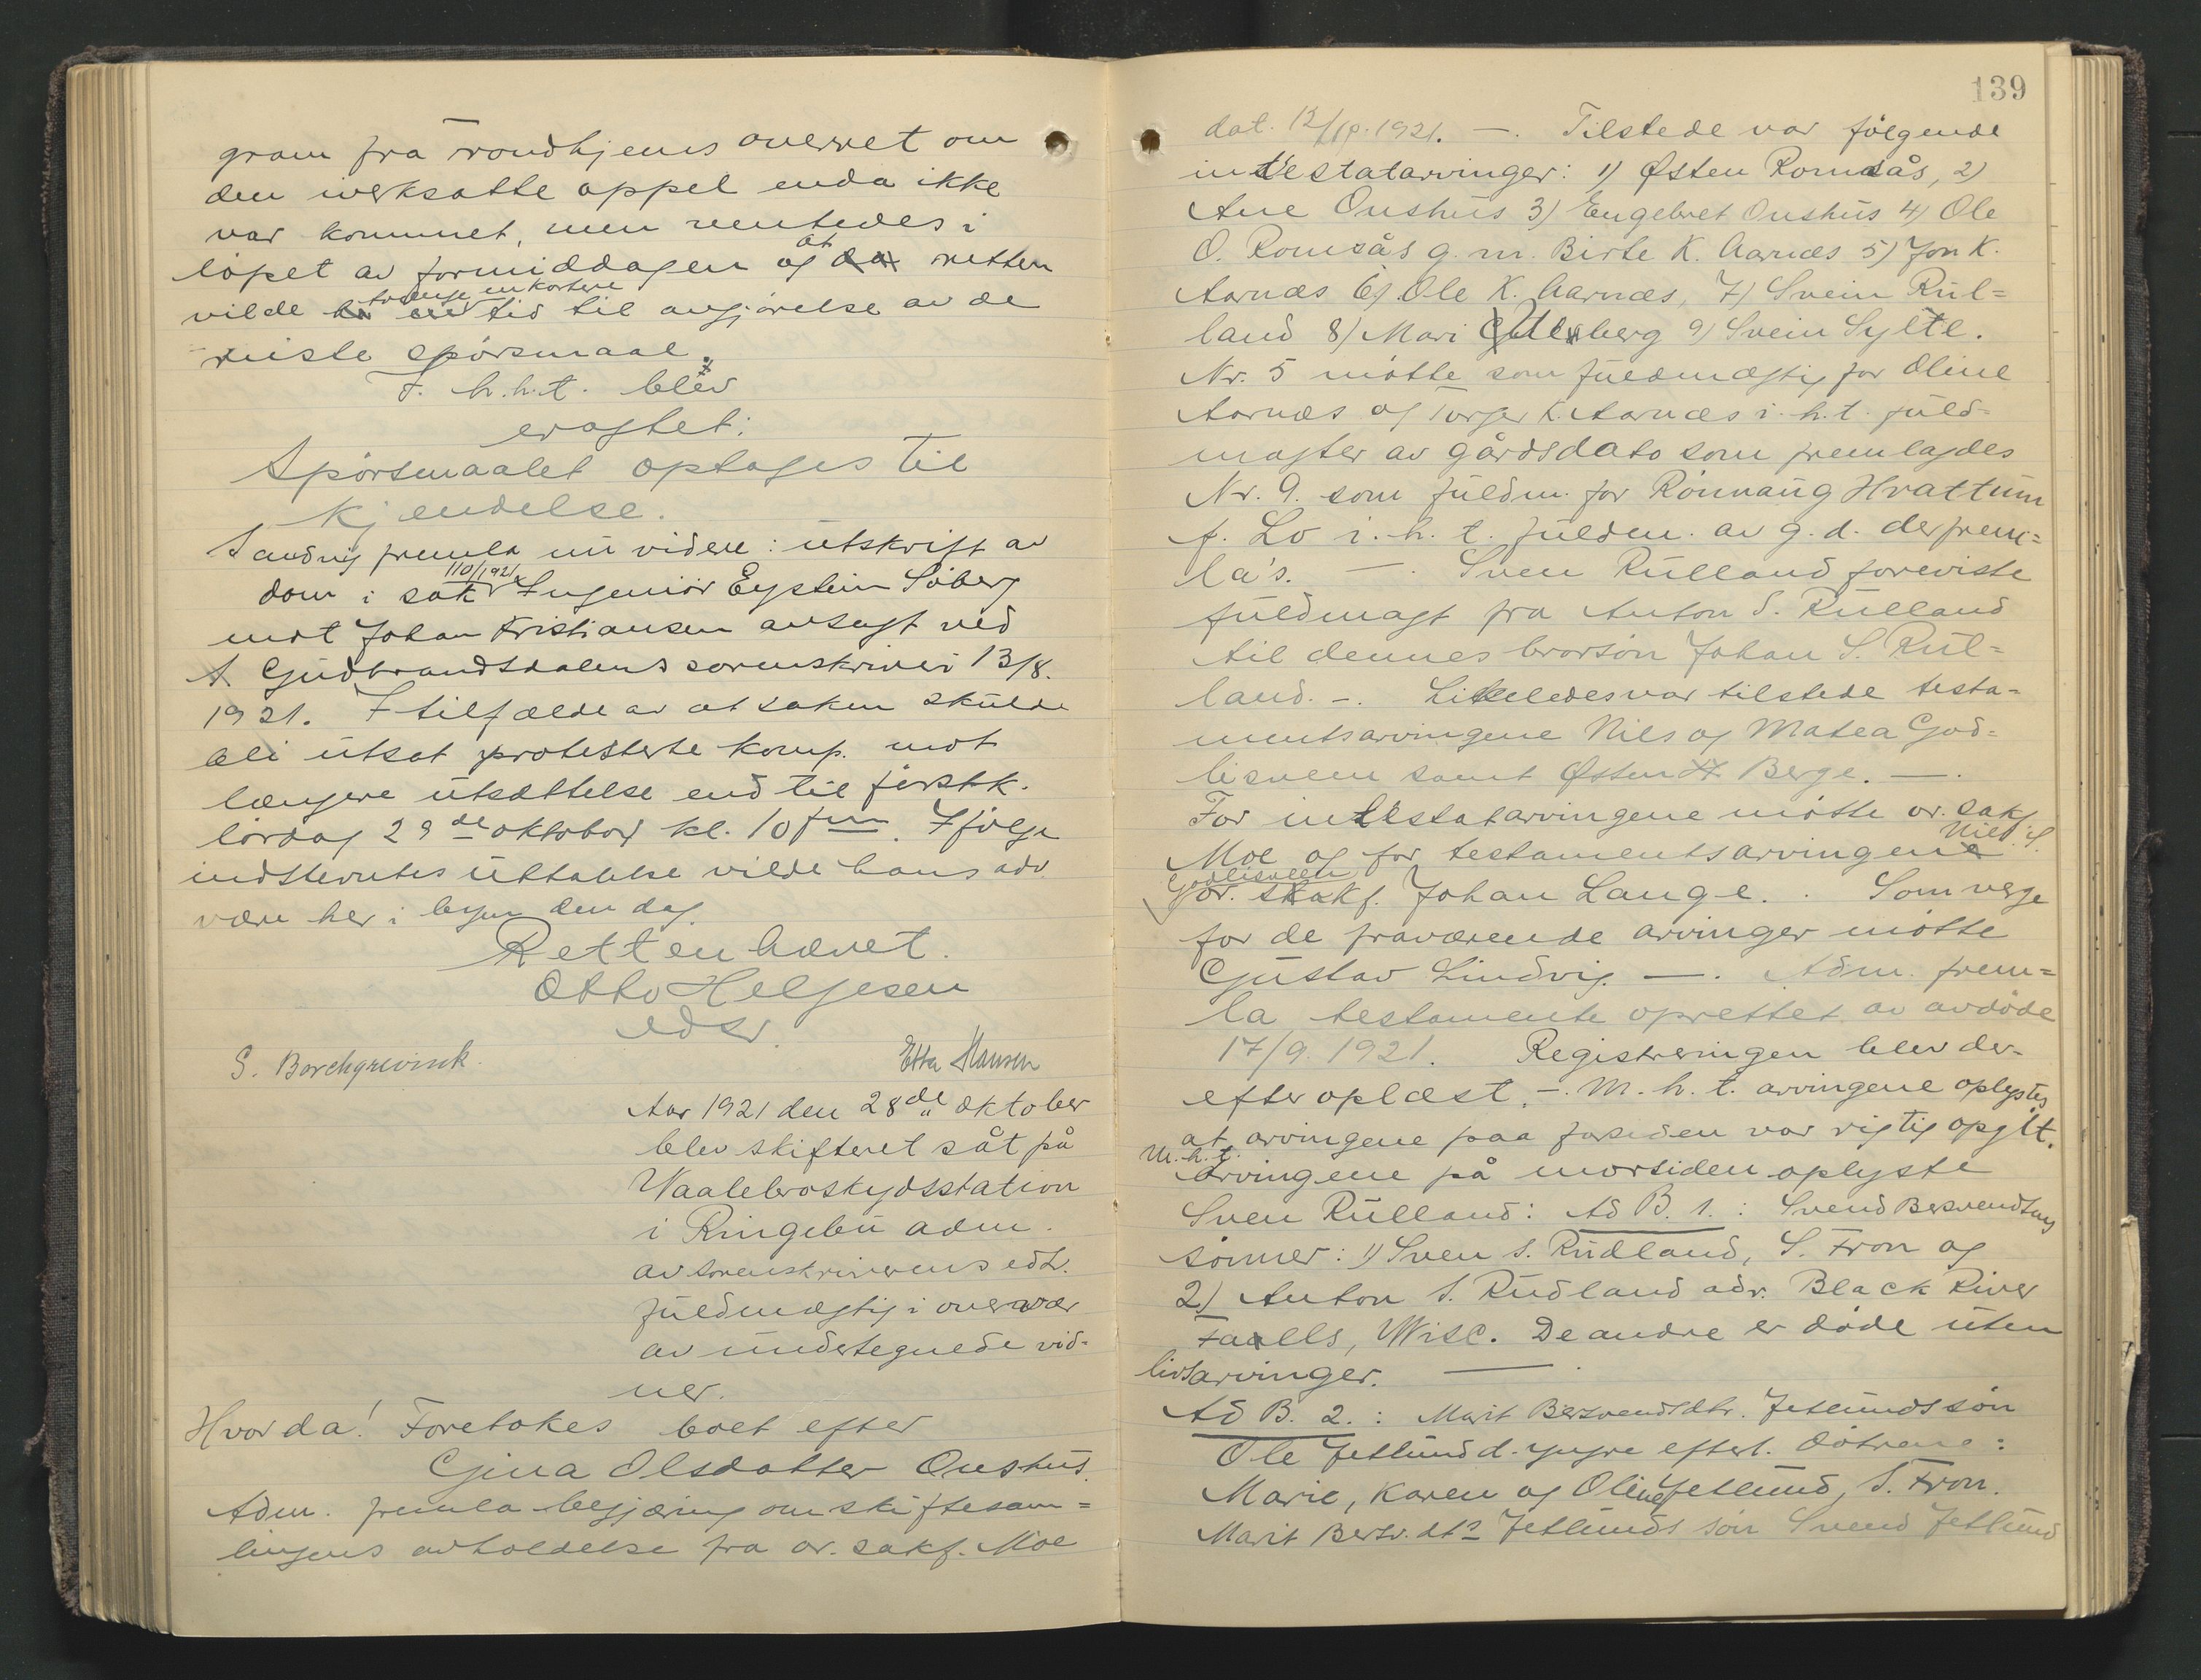 gram fra Trondhjems overret om
den iverksatte appel enda ikke
var kommet, men ventedes i
löpet av formiddagen og at da retten
vilde trænge en kortere tid til avgjörelse av de
reiste spörsmaal.
F. h. h. t. blev
eragtet:
Spörsmaalet optages til
kjendelse.
Sandvig fremla nu videre: utskrift av
dom i sak 110/1921 Ingeniör Eystein Söberg
mot Johan Kristiansen avsagt ved
S. Gudbrandsdalens sorenskriveri 13/8.
1921. I tilfælde av at saken skulde
bli utsat protesterte komp. mot
længere utsættelse end til förstk.
lördag 29de oktober kl. 10 fm. Ifölge
indstevntes uttalelse vilde hans adv
være her i byen den dag.
Retten hævet.
Otto Helgesen
edsv.
S. Borchgrevink.
Etta Hansen
Aar 1921 den 28de oktober
blev skifteret sat på
Vaalebroskydsstation
i Ringebu adm.
av sorenskriverens edsv.
fuldmægtig i overvær
av undertegnede vid-
ner.
Hvorda! Foretokes boet efter
Gina Olsdatter Onshus.
Adm. fremla begjæring om skiftesam=
lingens avholdelse fra or. sakf. Moe
139
dat. 12/10. 1921. —. Tilstede var fölgende
intestatarvinger: 1) Østen Romsås, 2)
Ane Onshus 3) Engebret Onshus 4) Ole
O. Romsås g. m. Birte K. Aarnæs 5) Jon K.
Aarnæs 6) Ole K. Aarnæs, 7) Svein Rul=
land 8) Mari berg 9) Svein Sylte.
Nr. 5 mötte som fuldmægtig for Oline
Aarnæs og Torger K. Aarnæs i. h. t. fuld=
magter av gårdsdato som fremlagdes
Nr. 9. som fuldm. for Rönnaug Hvattum
f. Lo i. h. t. fuldm. av g. d. der frem=
la's. —. Sven Rulland foreviste
fuldmagt fra Anton S. Rulland
til dennes brorsön Johan S. Rul=
land. —. Likeledes var tilstede testa-
mentsarvingene Nils og Matea God-
lisveen samt Østen Berge. —.
For intestatarvingene mötte or. sakf.
Moe og for testamentsarvingen Nils S.
Godlisveen or. sakf. Johan Lange. . Som verge
for de fraværende arvinger mötte
Gustav Lindvig. —. Adm. frem=
la testamente oprettet av avdöde
17/9. 1921. Registreringen blev der-
efter oplæst. —. M. h. t. arvingene oplystes
at arvingene paa farsiden var rigtig opgit.
M. h. t. arvingene på morsiden oplyste
Sven Rulland: Ad B. 1. : Svend Bersvendsens
sönner: 1) Sven S. Rudland, S. Fron og
2) Anton S. Rudland adr. Black River
Faells, Wisc. De andre er döde uten
livsarvinger. —.
Ad B. 2. : Marit Bersvendsdtr. Jetlunds sön
Ole Jetlund d. yngre efterl. dötrene:
Marie, Karen og Oline Jetlund, S. Fron.
Marit Bersv. dtr Jetlunds sön Svend Jetlund